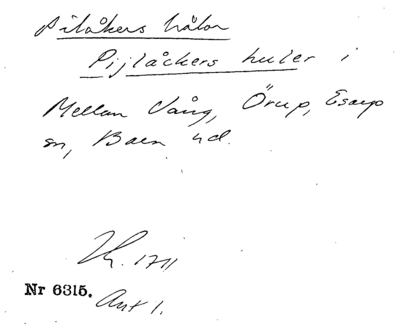 Pilåkers hålor
Pijlåckers huler i
Mellan Vång, Örup, Esarp
sn, Bara hd.
1711
Nr 6315. Akt 1.